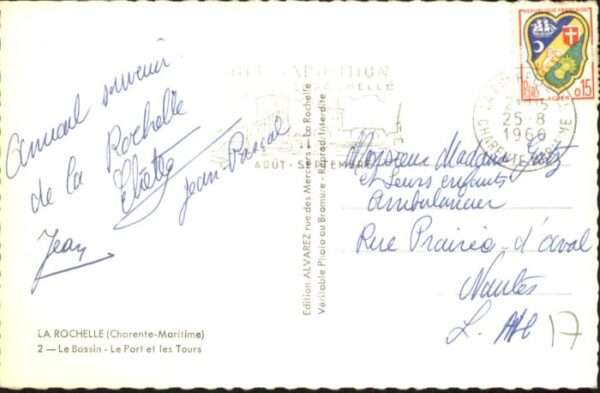 Amical souvenir
de la Rochelle
Jean
Jean-Pascal
LA ROCHELLE (Charente-Maritime)
2 — Le Bassin - Le Port et les Tours
Edition ALVAREZ rue des Merciers - La Rochelle
Véritable Photo au Bromure - Reprod. Interdite
TRADITION
AOÛT - SEPTEMBRE
REPUBLIQUE FRANÇAISE
ALGER
0,15
15
25-8
1960
Monsieur Madame
et Leurs enfants
Ambulancier
Rue Prairie-d'aval
Nantes
L. Atl
17